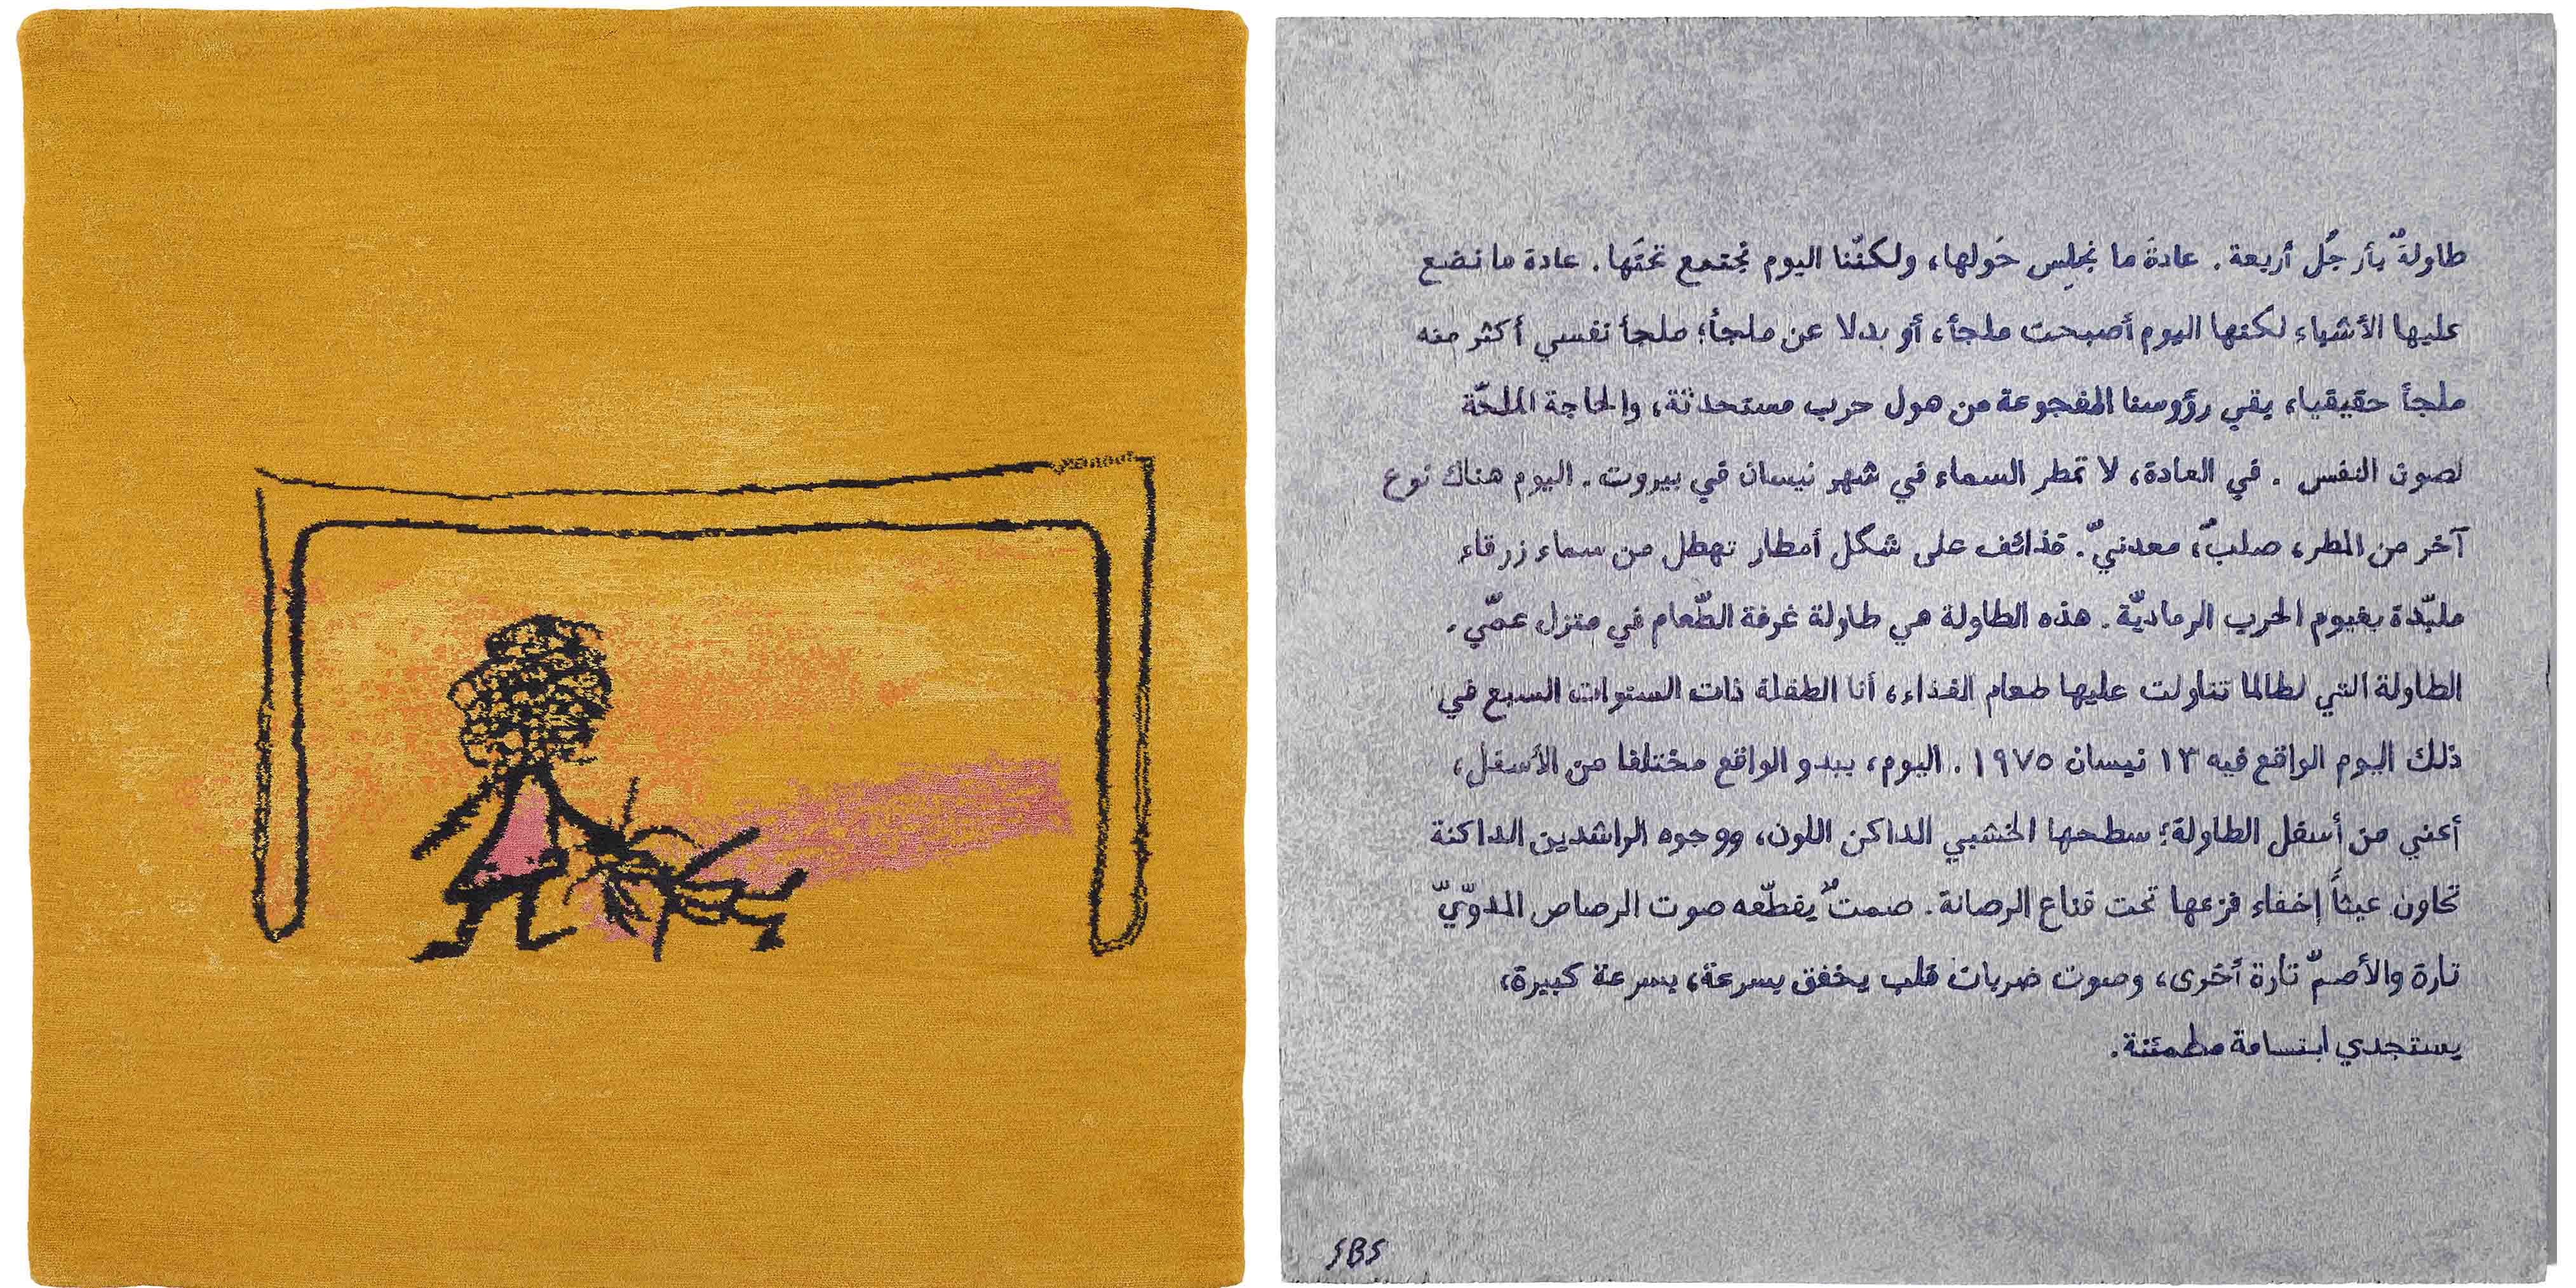 طاولةٌ بأرجُل أربعة. عادةً ما نجلِس حَولها، ولكنّنا اليوم نجتمع تحتَها. عادة ما نضع
عليها الأشياء لكنها اليوم أصبحت ملجأ، أو بدلا عن ملجأ؛ ملجأ نفسي أكثر منه
ملجأ حقيقيا، يقي رؤوسنا المفجوعة من هول حرب مستحدثة، والحاجة الملحّة
لصون النفس . في العادة، لا تمطر السماء في شهر نيسان في بيروت. اليوم هناك نوع
آخر من المطر، صلبٌ، معدنيّ. قذائف على شكل أمطار تهطل من سماء زرقاء
ملبّدة بغيوم الحرب الرماديّة. هذه الطاولة هي طاولة غرفة الطّعام في منزل عمّي.
الطاولة التي لطالما تناولت عليها طعام الغذاء، أنا الطفلة ذات السنوات السبع في
ذلك اليوم الواقع فيه ١٣ نيسان ١٩٧٥. اليوم، يبدو الواقع مختلفا من الأسفل،
أعني من أسفل الطاولة؛ سطحها الخشبي الداكن اللون، ووجوه الراشدين الداكنة
تحاون عبثاً إخفاء فزعها تحت قناع الرصانة. صمتٌ يقطّعه صوت الرصاص المدوّيّ
تارة والأصمّ تارة أخرى، وصوت ضربات قلب يخفق بسرعة، بسرعة كبيرة،
يستجدي ابتسامة مطمئنة.
SBS